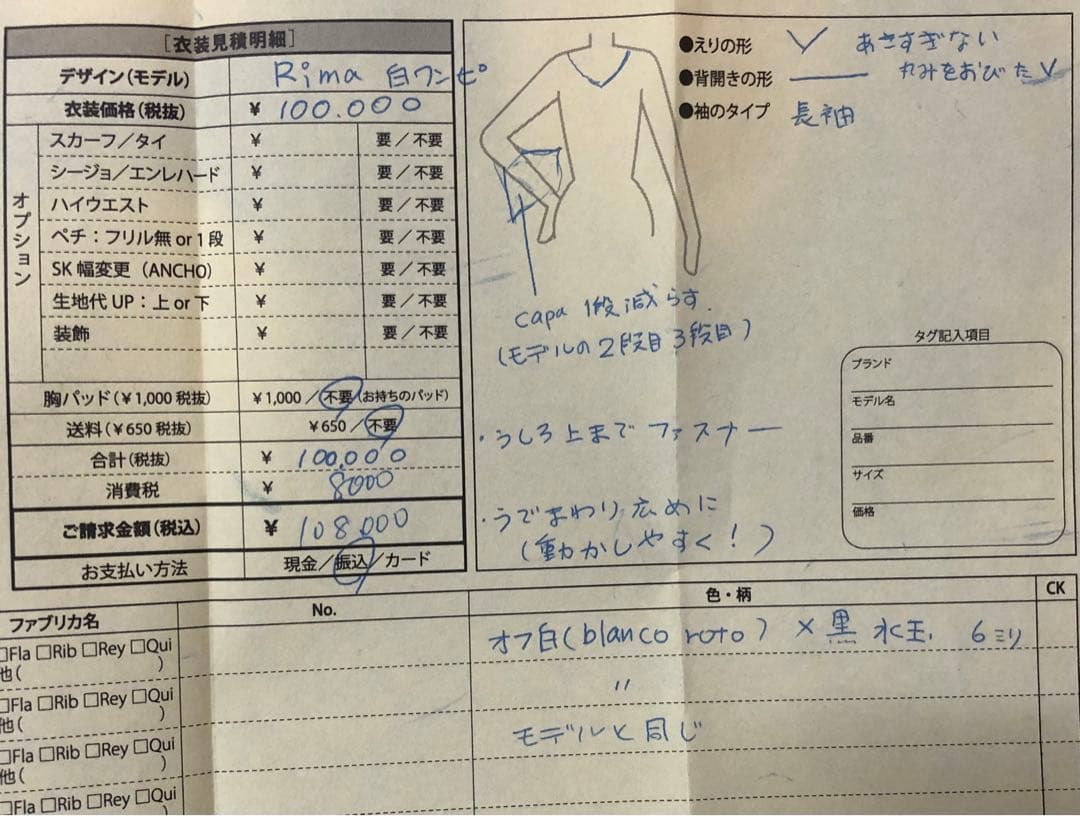 [衣装見積明細]
デザイン(モデル) Rima 白ワンピ
衣装価格(税抜) ¥ 100.000
オプション
スカーフ/タイ ¥ 要/不要
シージョ/エンレハード ¥ 要/不要
ハイウエスト ¥ 要/不要
ペチ:フリル無 or 1段 ¥ 要/不要
SK 幅変更 (ANCHO) ¥ 要/不要
生地代 UP:上 or 下 ¥ 要/不要
装飾 ¥ 要/不要
胸パッド(¥1,000 税抜) ¥1,000 /不要(お持ちのパッド)
送料(¥650 税抜) ¥650 /不要
合計(税抜) ¥ 100,000
消費税 ¥ 8000
ご請求金額(税込) ¥ 108.000
お支払い方法 現金/振込/カード
●えりの形 V あさすぎない
丸みをおびたV
●背開きの形
●袖のタイプ 長袖
capa 1段減らす.
(モデルの2段目3段目)
・うしろ上まで ファスナー
・うでまわり広めに
(動かしやすく!)
タグ記入項目
ブランド
モデル名
品番
サイズ
価格
ファブリカ名 No. 色・柄 CK
□Fla □Rib □Rey □Qui
他( )
オフ白(blanco roto) × 黒 水玉. 6ミリ
□Fla □Rib □Rey □Qui
他( )
〃
□Fla □Rib □Rey □Qui
他( )
モデルと同じ
□Fla □Rib □Rey □Qui